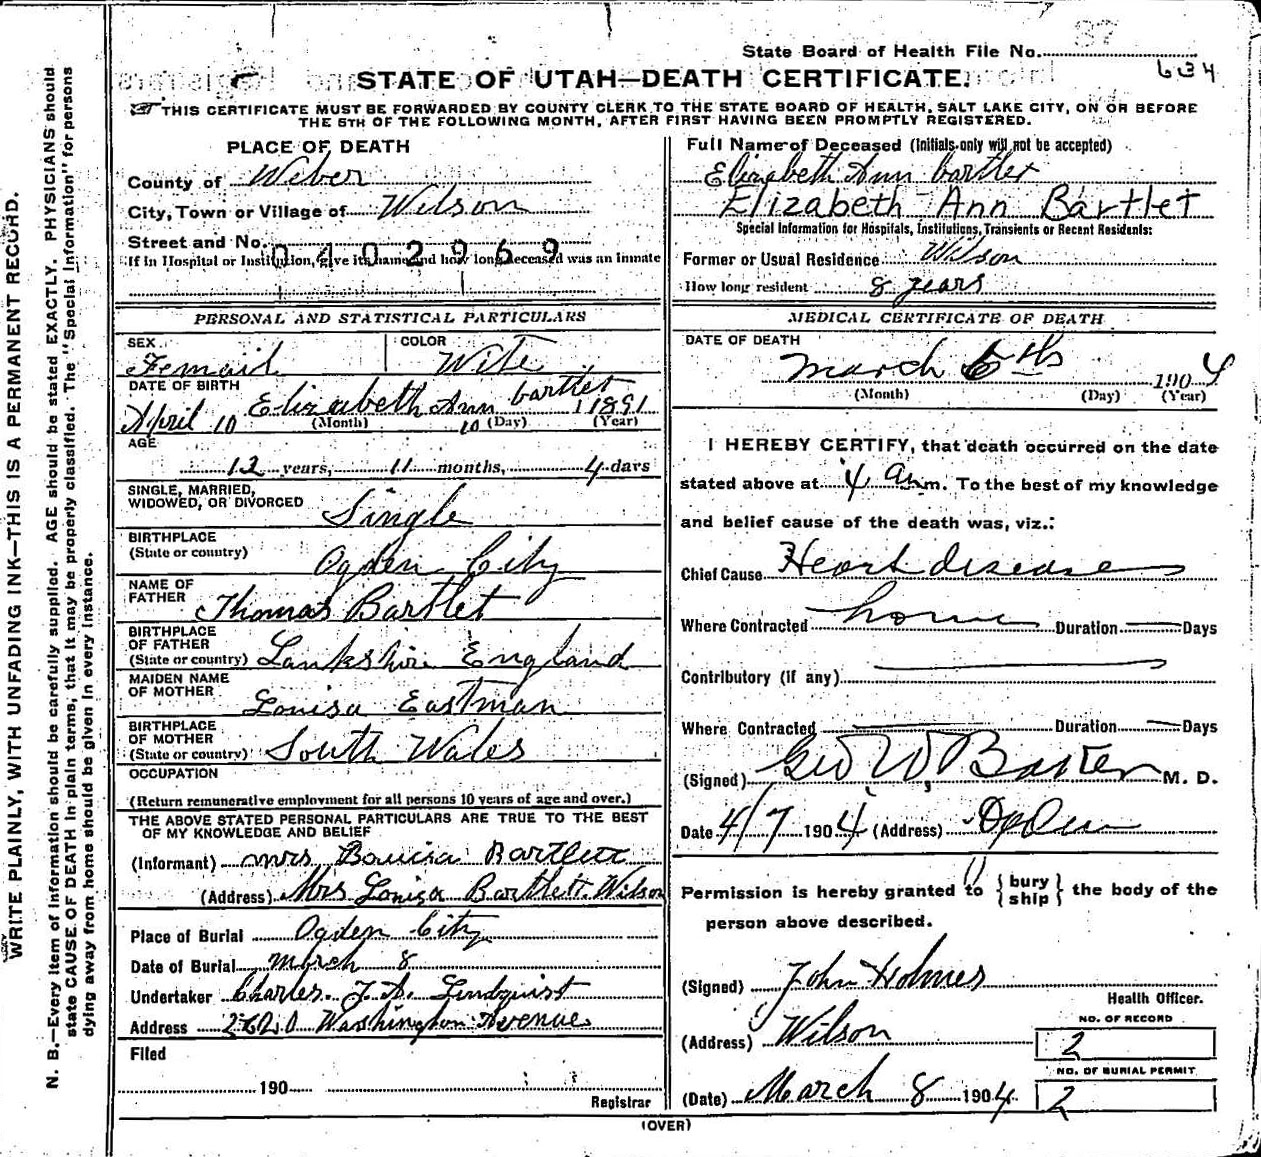 State Board of Health File No.
37
634
STATE OF UTAH—DEATH CERTIFICATE.
THIS CERTIFICATE MUST BE FORWARDED BY COUNTY CLERK TO THE STATE BOARD OF HEALTH, SALT LAKE CITY, ON OR BEFORE
THE 5TH OF THE FOLLOWING MONTH, AFTER FIRST HAVING BEEN PROMPTLY REGISTERED.
WRITE PLAINLY, WITH UNFADING INK—THIS IS A PERMANENT RECORD.
N. B.—Every item of information should be carefully supplied. AGE should be stated EXACTLY. PHYSICIANS should
state CAUSE OF DEATH in plain terms, that it may be properly classified. The "Special Information" for persons
dying away from home should be given in every instance.
PLACE OF DEATH
County of Weber
City, Town or Village of Wilson
Street and No.
0402969
If in Hospital or Institution, give its name and how long deceased was an inmate
PERSONAL AND STATISTICAL PARTICULARS
SEX Femail COLOR Wite
DATE OF BIRTH
Elizabeth Ann bartlet
April 10 10 1891
(Month) (Day) (Year)
AGE
12 years, 11 months, 4 days
SINGLE, MARRIED,
WIDOWED, OR DIVORCED Single
BIRTHPLACE
(State or country) Ogden City
NAME OF
FATHER Thomas Bartlet
BIRTHPLACE
OF FATHER
(State or country) Lankshire England
MAIDEN NAME
OF MOTHER Louisa Eastman
BIRTHPLACE
OF MOTHER
(State or country) South Wales
OCCUPATION
(Return remunerative employment for all persons 10 years of age and over.)
THE ABOVE STATED PERSONAL PARTICULARS ARE TRUE TO THE BEST
OF MY KNOWLEDGE AND BELIEF
(Informant) mrs Bartlett
(Address) Mrs Louisa Bartlett. Wilson
Place of Burial Ogden City
Date of Burial March 8
Undertaker Charles J. A. Lindquist
Address Washington Avenue
Filed
190
Registrar
Full Name of Deceased (Initials only will not be accepted)
Elizabeth Ann bartlet
Elizabeth Ann Bartlet
Special Information for Hospitals, Institutions, Transients or Recent Residents:
Former or Usual Residence Wilson
How long resident 8 years
MEDICAL CERTIFICATE OF DEATH
DATE OF DEATH
March 6ths 1904
(Month) (Day) (Year)
I HEREBY CERTIFY, that death occurred on the date
stated above at 4 a.m. To the best of my knowledge
and belief cause of the death was, viz.:
Chief Cause Heart disease
Where Contracted home Duration — Days
Contributory (if any) —
Where Contracted — Duration — Days
(Signed) Geo W. Baxter M. D.
Date 4/7 1904 (Address) Ogden
Permission is hereby granted to { bury
ship } the body of the
person above described.
(Signed) John Holmes
Health Officer.
(Address) Wilson
NO. OF RECORD
2
(Date) March 8 1904
NO. OF BURIAL PERMIT
2
(OVER)